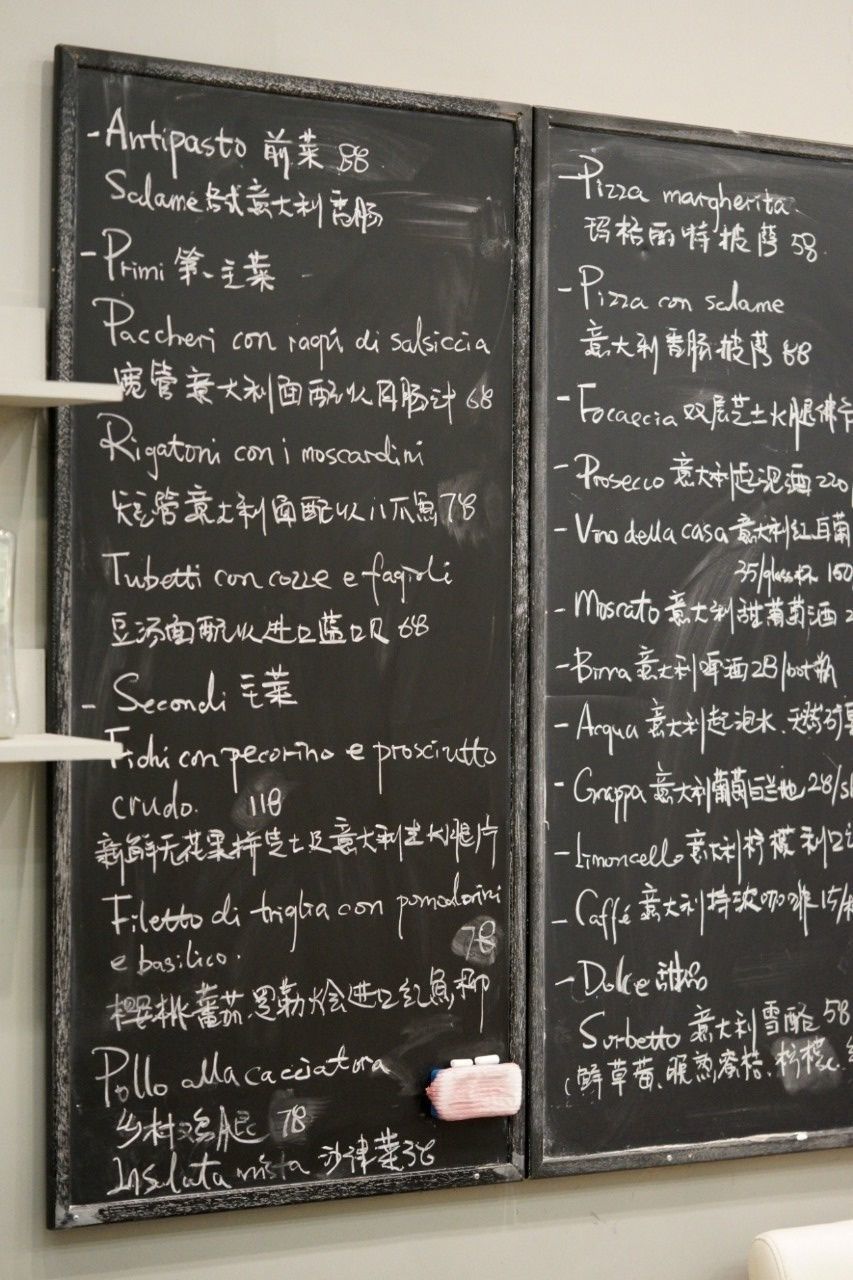 - Antipasto 前菜 88
Salame 各式意大利香肠
- Primi 第一主菜
Paccheri con ragù di salsiccia
宽管意大利面配以肉肠汁 68
Rigatoni con i moscardini
短管意大利面配以八爪鱼 78
Tubetti con cozze e fagioli
豆汤面配以进口蓝口贝 68
- Secondi 主菜
Fichi con pecorino e prosciutto
crudo. 118
新鲜无花果拼芝士及意大利生火腿片
Filetto di triglia con pomodorini
78
e basilico.
樱桃蕃茄.罗勒烩进口红鱼柳
Pollo alla cacciatora
乡村鸡腿 78
Insalata mista 沙律菜 38
- Pizza margherita
玛格丽特披萨 58
- Pizza con salame
意大利香肠披萨 68
- Focaccia 双层芝士火腿
- Prosecco 意大利起泡酒 220
- Vino della casa 意大利红
35/glass杯
- Moscato 意大利甜葡萄酒
- Birra 意大利啤酒 28/bot瓶
- Acqua 意大利起泡水、天然矿
- Grappa 意大利葡萄白兰地 28/
- Limoncello 意大利柠檬利口
- Caffé 意大利特浓咖啡 15/
- Dolce 甜品
Sorbetto 意大利雪酪 58
(鲜草莓、暖热蜜桔、柠檬、